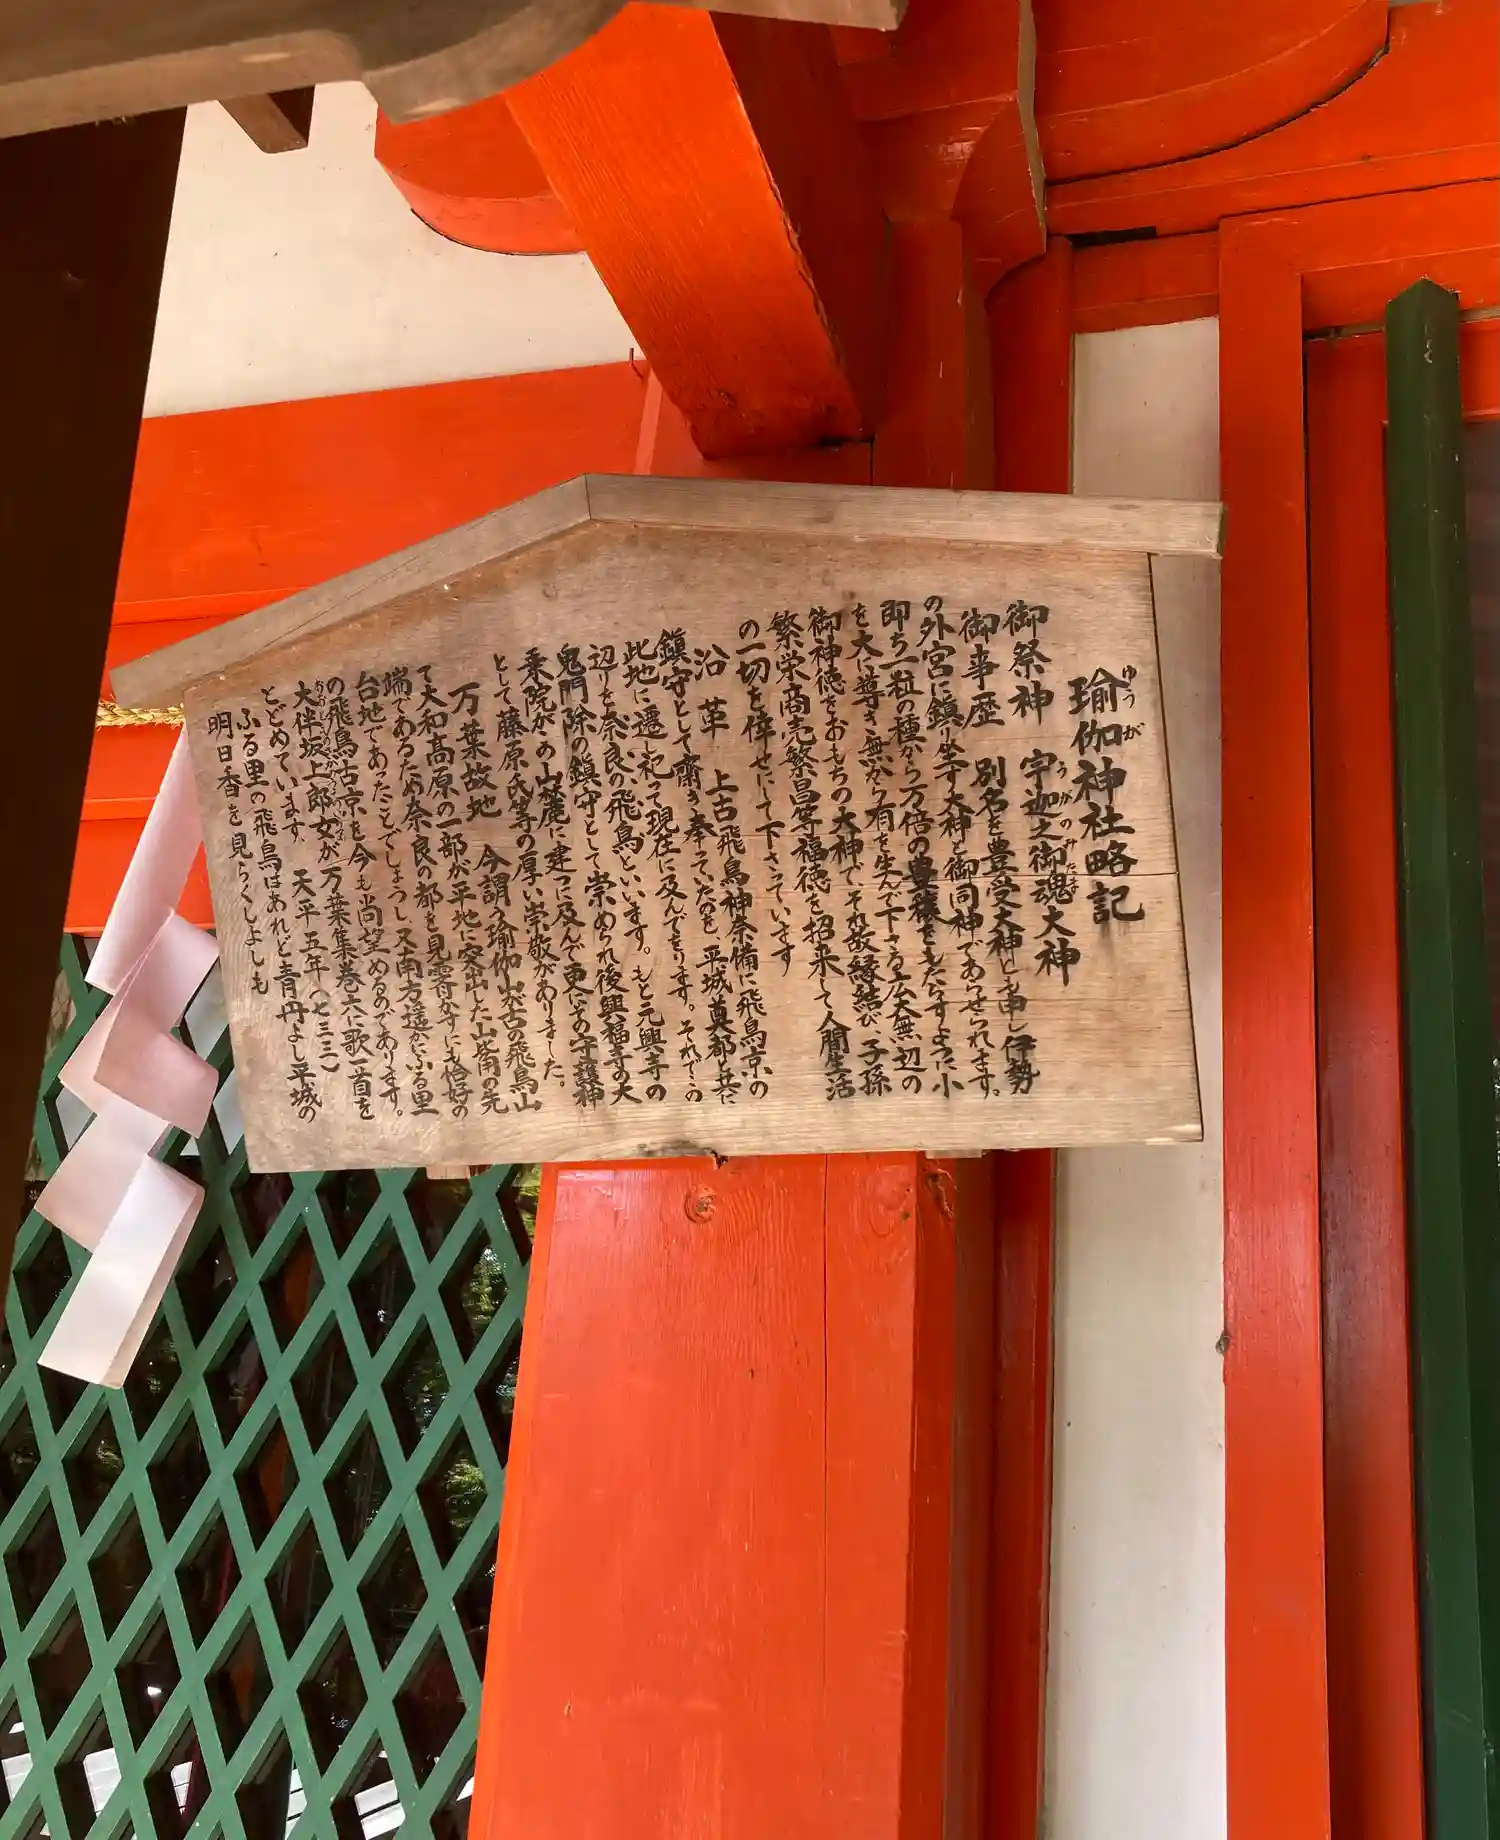 瑜伽神社略記
ゆうが
御祭神　宇迦之御魂大神
うがのみたま
御事歴　別名を豊受大神とも申し伊勢
の外宮に鎮り坐す大神と御同神であらせられます。
即ち一粒の種から万倍の豊穣をもたらすように小
を大に尊き無から有を生んで下さる広大無辺の
御神徳をおもちの大神で、それ故縁結び、子孫
繁栄商売繁昌等福徳を招来して人間生活
の一切を倖せにして下さっています
沿革　上古飛鳥神奈備に飛鳥京の
鎮守として齋き奉っていたのを、平城奠都と共に
此地に遷し祀って現在に及んでをります。それでこの
辺りを奈良の飛鳥といいます。もと元興寺の
鬼門除の鎮守として崇められ後興福寺の大
乗院がこの山麓に建つに及んで更にその守護神
として藤原氏等の厚い崇敬がありました。
万葉故地　今謂う瑜伽山が古の飛鳥山
て大和高原の一部が平地に突出した山嘴の先
端であるため奈良の都を見霽かすにも恰好の
台地であったことでしょうし、又南方遥かにふる里
の飛鳥古京を今も尚望めるのであります。
大伴坂上郎女が万葉集巻六に歌一首を
とどめています　天平五年（七三三）
ふる里の飛鳥はあれど青丹よし平城の
明日香を見らくしよしも